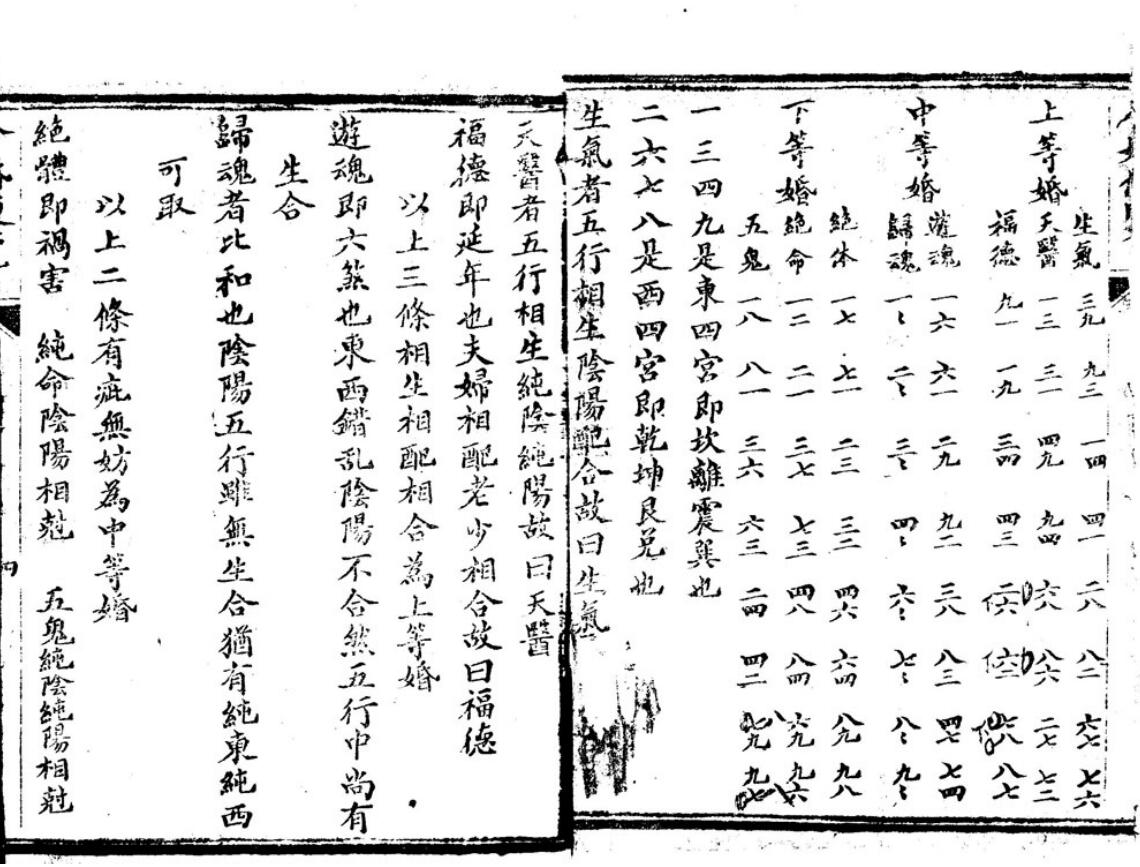 上等婚
生氣 三九 九三 一四 四一 二八 八二 六七 七六
天醫 一三 三一 四九 九四 六八 八六 二七 七二
福德 九一 一九 三四 四三 二六 六二 八七
中等婚
遊魂 一六 六一 二九 九二 三八 八三 四七 七四
歸魂 一〻 二〻 三〻 四〻 六〻 七〻 八〻 九〻
下等婚
絶体 一七 七一 二三 三二 四六 六四 八九 九八
絶命 一二 二一 三七 七三 四八 八四 六九 九六
五鬼 一八 八一 三六 六三 二四 四二 七九 九七
一三四九是東四宮即坎離震巽也
二六七八是西四宮即乾坤艮兌也
生氣者五行相生陰陽配合故曰生氣
天醫者五行相生純陰純陽故曰天醫
福德即延年也夫婦相配老少相合故曰福德
以上三條相生相配相合為上等婚
遊魂即六煞也東西錯乱陰陽不合然五行中尚有
生合
歸魂者比和也陰陽五行雖無生合猶有純東純西
可取
以上二條有疵無妨為中等婚
絶體即禍害 純命陰陽相尅 五鬼純陰純陽相尅